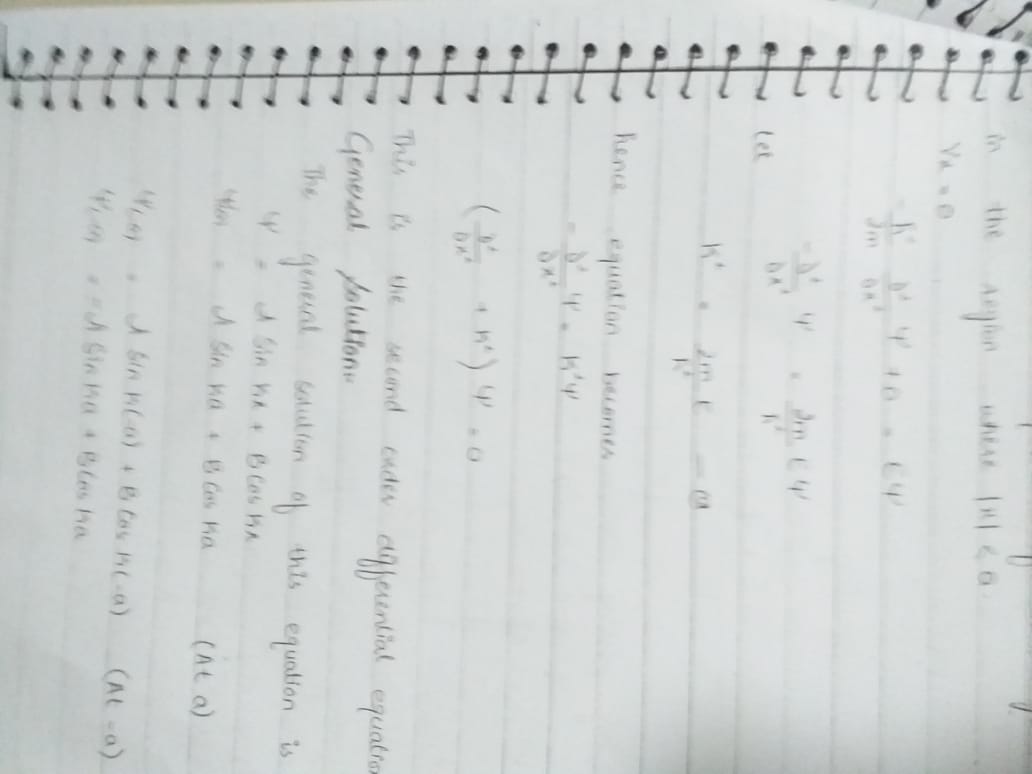 in the region where |x| < a.
Vx = 0
-ħ²/2m ∂²/∂x² Ψ + 0 = EΨ
-∂²/∂x² Ψ = 2m/ħ² EΨ
let
K² = 2m/ħ² E —
hence equation becomes
-∂²/∂x² Ψ = K²Ψ
(∂²/∂x² + K²) Ψ = 0
This is the second order differential equation
General Solution:
The general solution of this equation is
Ψ = A Sin Kx + B Cos Kx
Ψ(a) = A Sin Ka + B Cos Ka (At a)
Ψ(-a) = A Sin K(-a) + B Cos K(-a) (At -a)
Ψ(-a) = -A Sin Ka + B Cos Ka